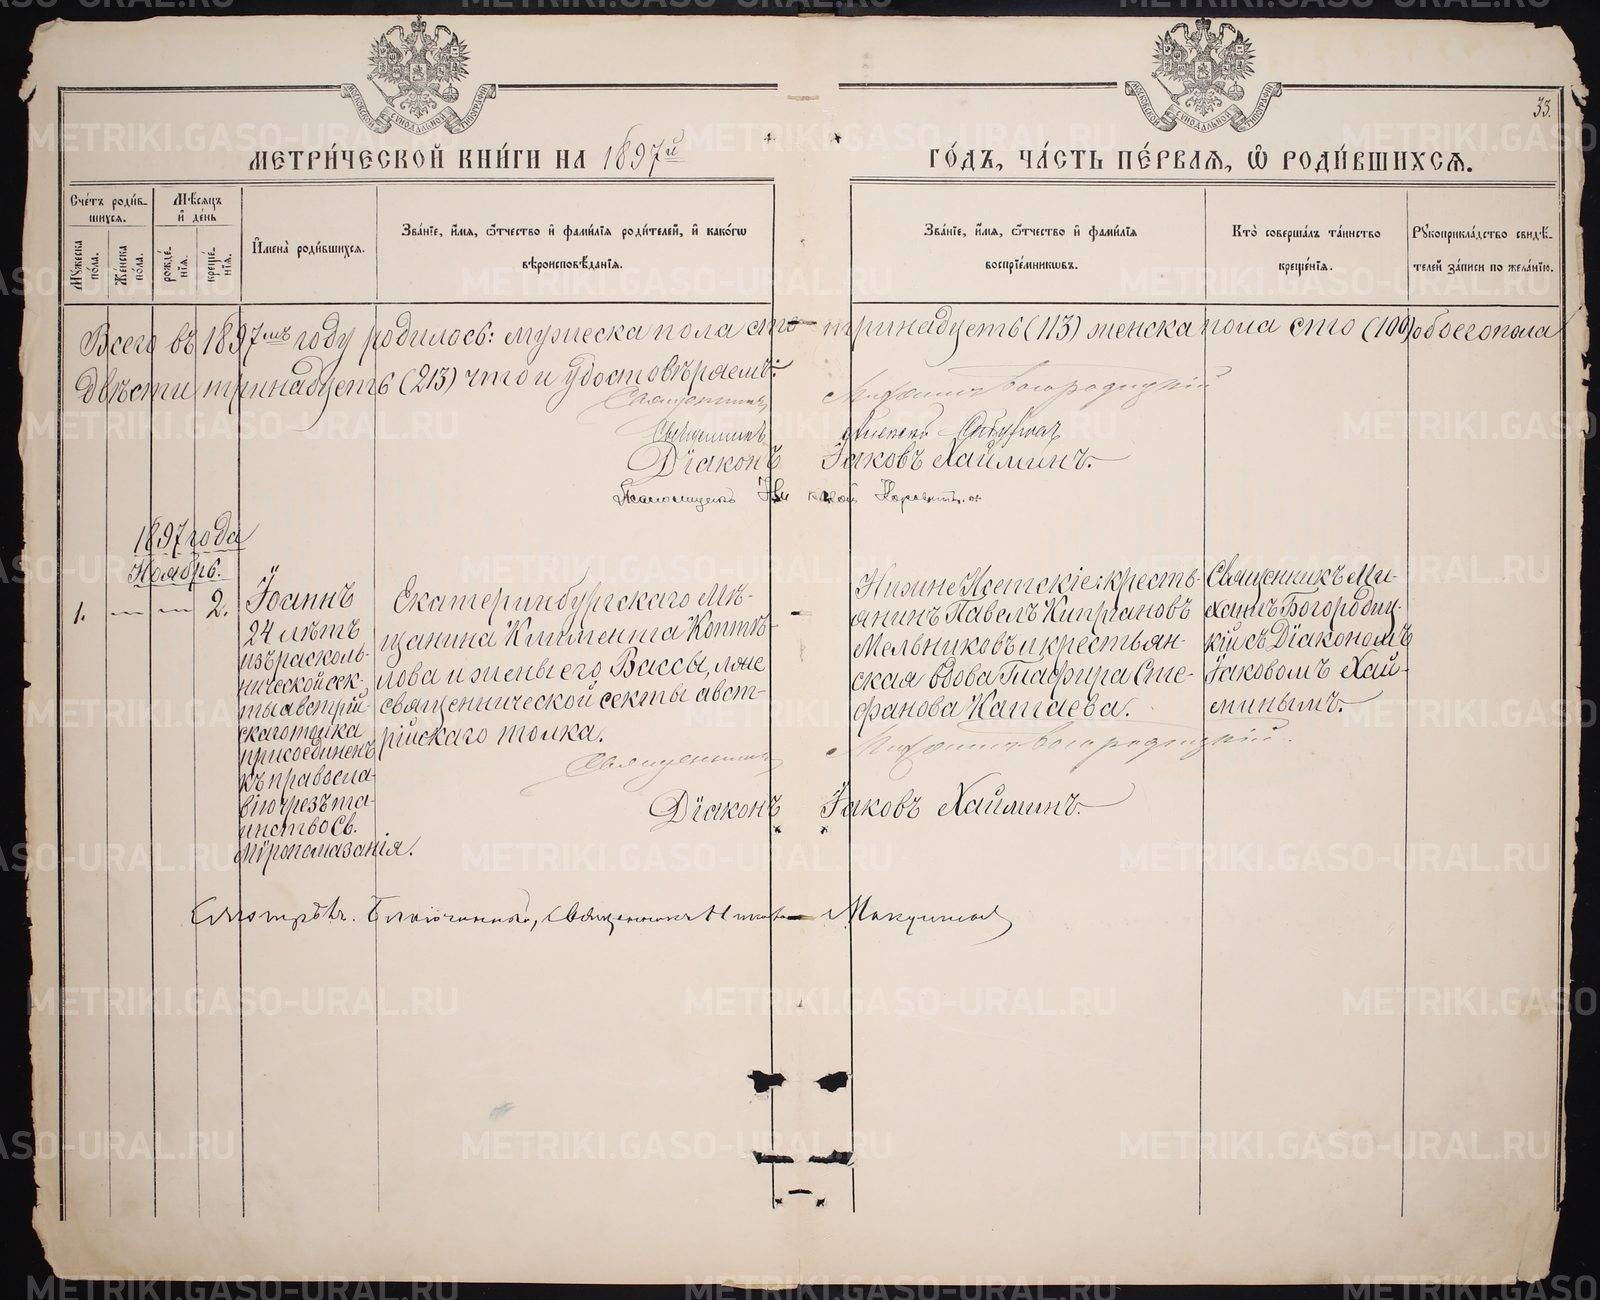 МОСКОВСКОЙ СѴНОДАЛЬНОЙ ТИПОГРАФІИ
МОСКОВСКОЙ СѴНОДАЛЬНОЙ ТИПОГРАФІИ
33.
МЕТРИ́ЧЕСКОЙ КНИ́ГИ НА 1897й
ГО́ДЪ, ЧА́СТЬ ПЕ́РВАЯ, Ѡ РОДИ́ВШИХСЯ.
Сче́тъ роди́в-
шихся.
Мѣ́сяцъ
и҆ де́нь
Мꙋ́жеска
по́ла.
Же́нска
по́ла.
рожде́-
нїѧ.
креще́-
нїѧ.
И҆мена̀ роди́вшихся.
Зва́нїе, и҆́мя, ѻ҆́тчество и҆ фами́лїя роди́телей, и҆ како́гѡ
вѣроисповѣ́данїя.
Зва́нїе, и҆́мя, ѻ҆́тчество и҆ фами́лїя
воспрїе́мниковъ.
Кто̀ соверша́лъ та́инство
креще́нїя.
Рꙋкоприкла́дство свидѣ́-
телей за́писи по жела́нїю.
Всего въ 1897мъ году родилось: мужеска пола сто тринадцать (113) женска пола сто (100) обоего пола
двѣсти тринадцать (213) что и удостовѣряемъ:
Священникъ Михаилъ Богородицкій
Священникъ
Діаконъ Іаковъ Хайминъ.
Псаломщикъ Николай
1897 года
Ноябрь.
1. — — 2.
Іоаннъ
24 лѣтъ
изъ расколь-
нической сек-
ты австрій-
скаго толка
присоединенъ
къ правосла-
вію чрезъ та-
инство Св.
Мѵропомазанія.
Екатеринбургскаго мѣ-
щанина Климента Коптѣ-
лова и жены его Вассы, лже
священнической секты авст-
рійскаго толка.
Нижне Исетскіе: кресть-
янинъ Павелъ Кипріановъ
Мельниковъ и крестьян-
ская вдова Глафира Сте-
фанова Катаева.
Священникъ Ми-
хаилъ Богородиц-
кій съ Діакономъ
Іаковомъ Хай-
минымъ.
Священникъ Михаилъ Богородицкій.
Діаконъ Іаковъ Хайминъ.
Смотрѣлъ. Благочинный, священникъ
METRIKI.GASO-URAL.RU